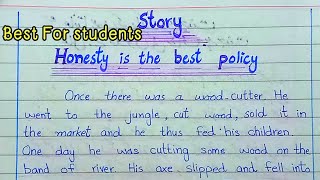 Story
Best For students
Honesty is the best policy
Once there was a wood-cutter. He
went to the jungle, cut wood, sold it in
the market and he thus fed his children.
One day he was cutting some wood on the
band of river. His axe slipped and fell into